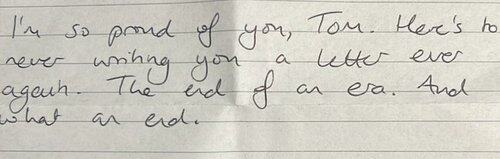 I'm so proud of you, Tom. Here's to
never writing you a letter ever
again. The end of an era. And
what an end.